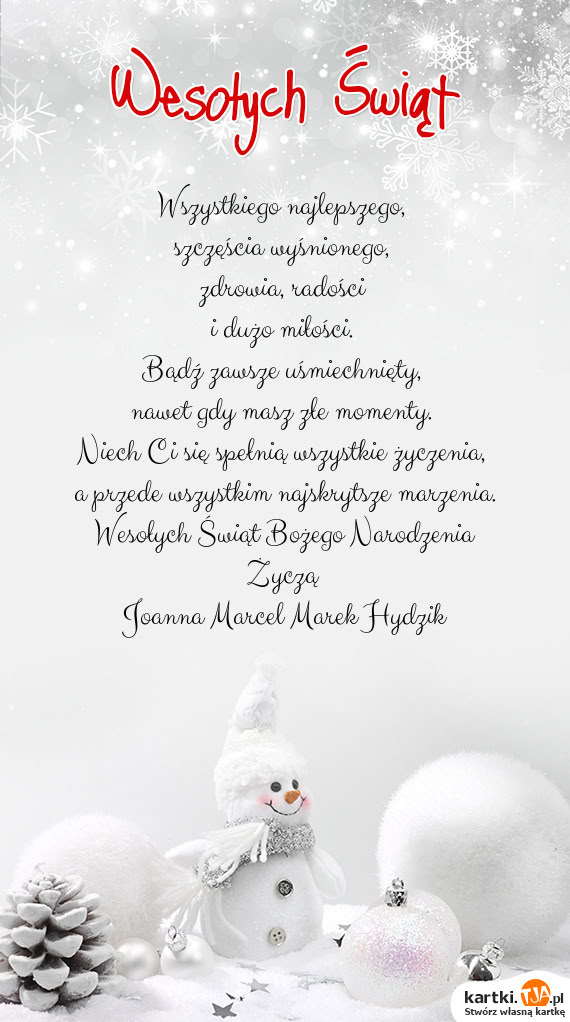 Wesołych Świąt
Wszystkiego najlepszego,
szczęścia wyśnionego,
zdrowia, radości
i dużo miłości.
Bądź zawsze uśmiechnięty,
nawet gdy masz złe momenty.
Niech Ci się spełnią wszystkie życzenia,
a przede wszystkim najskrytsze marzenia.
Wesołych Świąt Bożego Narodzenia
Życzą
Joanna Marcel Marek Hydzik
kartki.TJA.pl
Stwórz własną kartkę